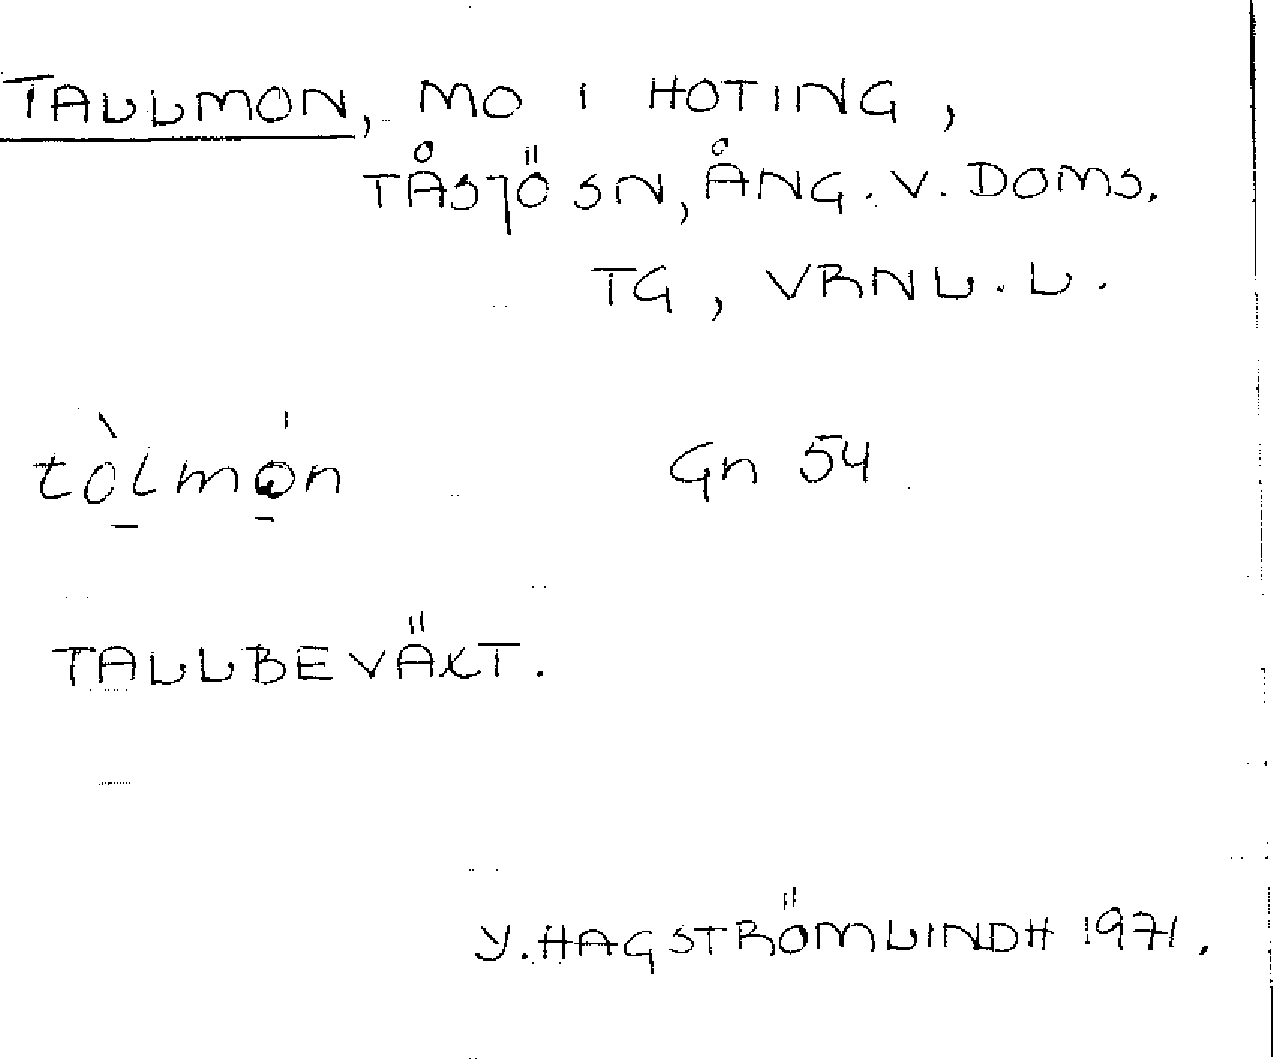 TALLMON, MO I HOTING,
TÅSJÖ SN, ÅNG. V. DOMS.
TG, VRNL. L.
tò̱lmó̱n Gn 54
TALLBEVÄXT.
Y. HAGSTRÖMLINDH 1971.